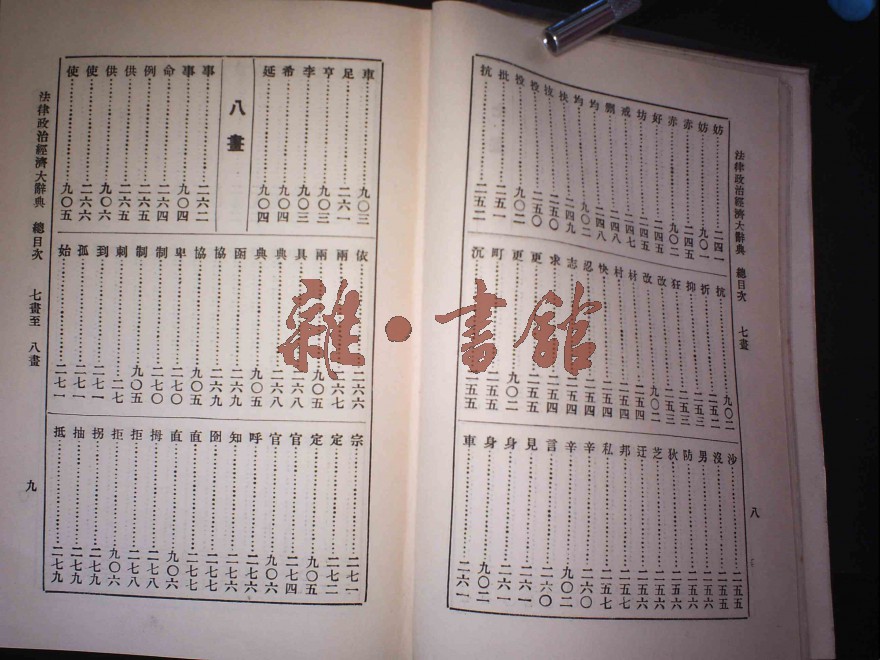 法律政治經濟大辭典 總目次 七畫
妨……二四一
妨……九〇一
赤……二四五
赤……九〇二
好……二四五
坊……二四五
戒……二四七
二四八
均……二四八
均……九〇二
扶……二四九
技……二五〇
投……二五〇
投……九〇二
批……二五一
抗……二五二
抗……九〇二
折……二五二
抑……二五三
狂……二五三
改……二五三
改……九〇二
材……二五四
村……二五四
快……二五四
忍……二五四
志……二五四
求……二五五
更……二五五
更……九〇二
町……二五五
沉……二五五
沙……二五五
沒……二五五
男……二五六
防……二五六
狄……二五六
芝……二五六
迂……二五六
邦……二五七
私……二五七
辛……二六〇
辛……九〇二
言……二六〇
見……二六一
身……二六一
身……九〇二
車……二六一
八
車……九〇三
足……二六一
亨……九〇三
李……九〇三
希……九〇四
延……九〇四
八畫
事……二六二
事……九〇四
命……二六四
例……二六五
供……二六五
供……九〇六
使……二六六
使……九〇五
依……二六六
兩……二六七
兩……九〇五
具……二六八
典……二六八
典……九〇五
函……二六九
協……二六九
協……九〇五
卑……二七〇
制……二七〇
制……九〇五
刺……二七
到……二七一
孤……二七一
始……二七一
宗……二七一
定……二七二
定……九〇五
官……二七四
官……九〇六
呼……二七六
知……二七六
囹……二七七
直……二七七
直……九〇六
拇……二七八
拒……二七八
拒……九〇六
拐……二七九
抽……二七九
抵……二七九
法律政治經濟大辭典 總目次 七畫至 八畫
九
雜·書館